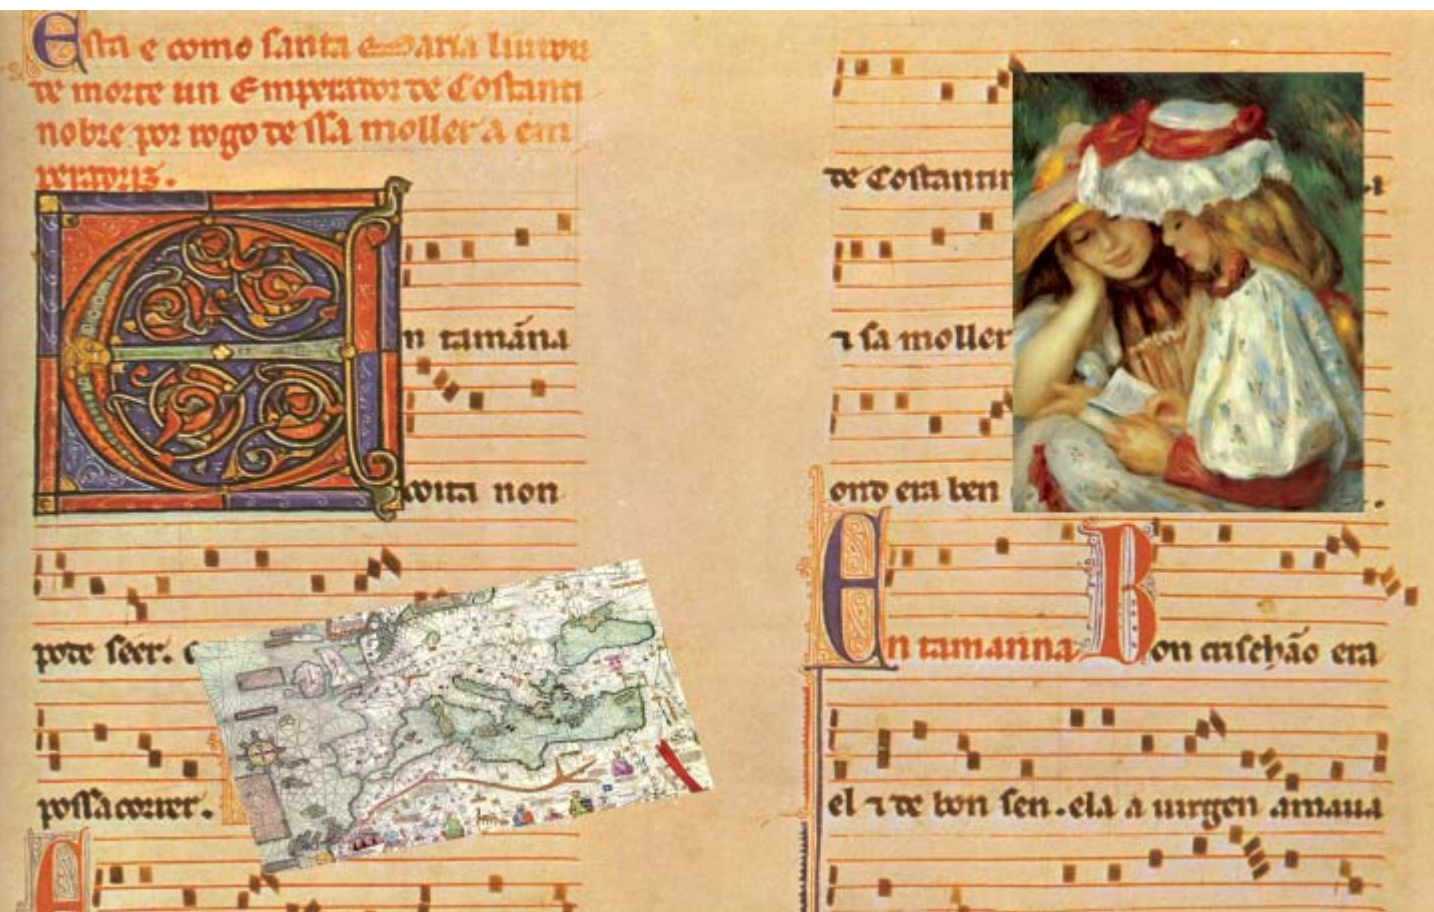 Esta e como santa Maria liurou
de morte un Emperador de Costanti
nobre por rogo de ssa moller a em
peradriz.
En tamãna
coita non
pode seer.
possa correr.
de Costantin
⁊ sa moller
ond era ben
En tamanna Bon crischão era
el ⁊ de bon sen. ela a uirgen amaua